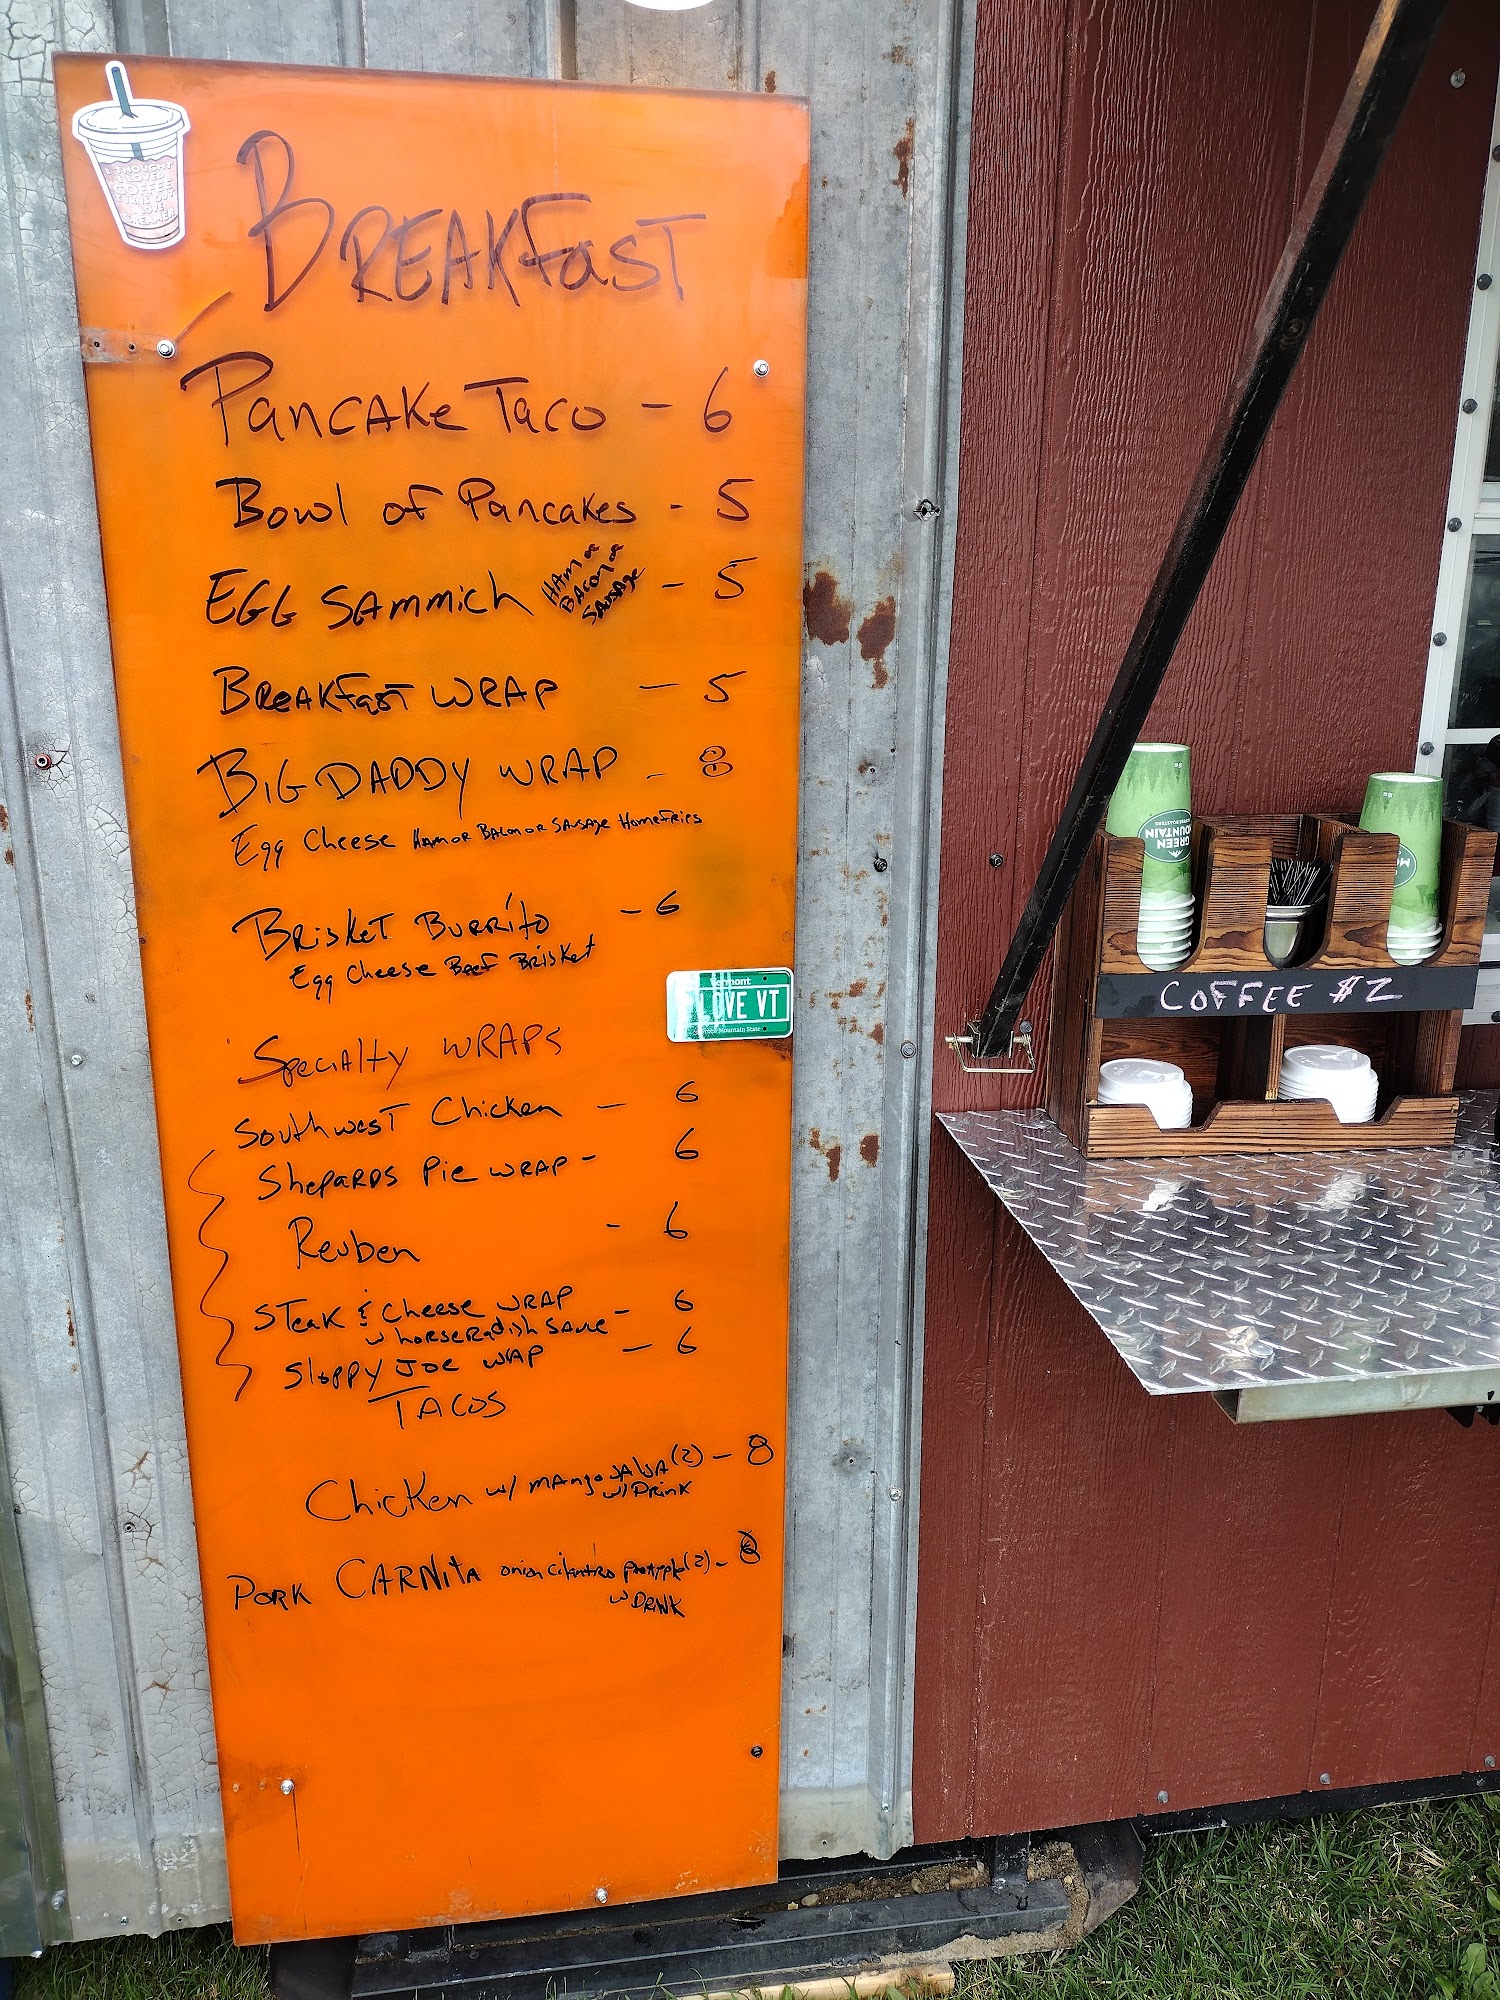 I THOUGHT
I LOVED
COFFEE
TURNS OUT
SO IS
CREAMER
BREAKfasT
PancAKe Taco - 6
Bowl of Pancakes - 5
EGG SAmmich HAM or BACon or SAUSAge - 5
BReAKfasT WRAP - 5
BIG DADDY WRAP - 8
Egg Cheese HAM OR BACON OR SAUSAge HomeFries
BRisKeT BURRiTo - 6
Egg Cheese Beef BRisket
Specialty WRAPS
Southwest Chicken - 6
ShepaRDs Pie WRAP - 6
Reuben - 6
STeak & Cheese WRAP - 6
w horseRadish SAuce
Sloppy JOe WRAP - 6
TACOS
Chicken w/ mAngo SAlsA (2) - 8
w/ DRinK
PoRK CARNitA onion cilantro pineapple (2) - 8
w DRiNK
Vermont
I LOVE VT
Green Mountain State
GREEN
MOUNTAIN
COFFEE ROASTERS
MO
COFFEE $2